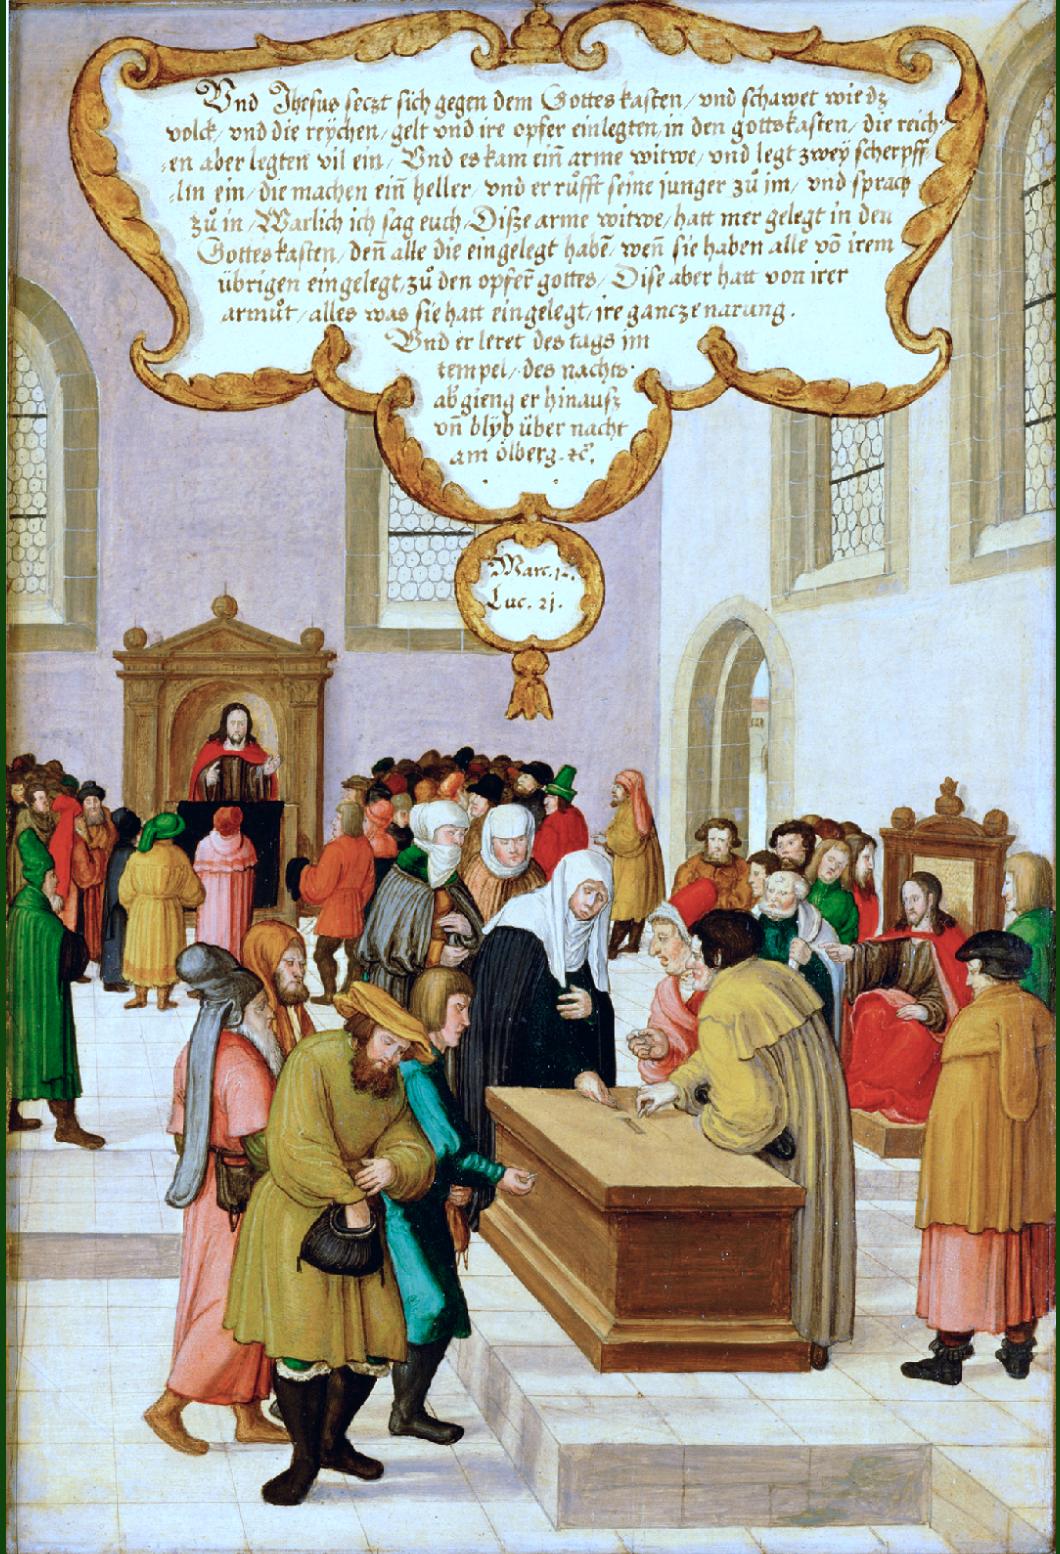 Vnd Jhesus seczt sich gegen dem Gottes kasten / vnd schawet wie dz
volck / vnd die reychen / gelt vnd ire opfer einlegten / in den gottskasten / die reich-
en aber legten vil ein / Vnd es kam ein̄ arme witwe / vnd legt zwey scherpff
lin ein / die machen ein̄ heller / vnd er růfft seine junger zů im / vnd sprach
zů in / Warlich ich sag euch / Disze arme witwe / hatt mer gelegt in den
Gottes kasten / den̄ alle die eingelegt habē / wen̄ sie haben alle vō irem
übrigen eingelegt / zů den opfer̄ gottes / Dise aber hatt von irer
armůt / alles was sie hatt eingelegt / ire gancze narung .
Vnd er leret des tags im
tempel / des nachts
ab gieng er hinausz
vn̄ blyb über nacht
am ölberg . ⁊c̄.
Marc. 12.
Luc. 21.